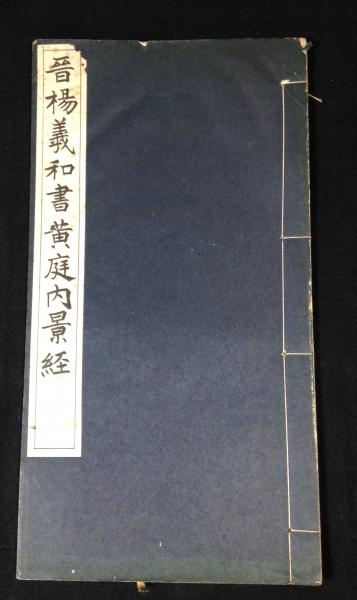 晋楊羲和書黄庭内景経